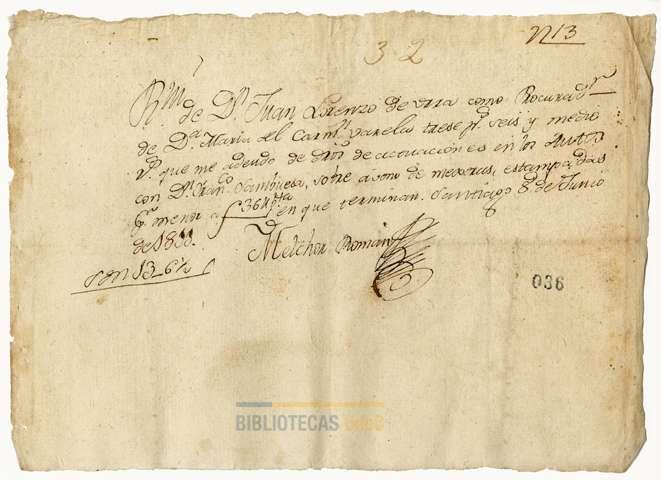 N13
32
Rvi de Dn Juan Lorenzo de Urra como Procurador
de Da Maria del Carmn Varela trese ps seis y medio
rs que me adeudo de dros de actuaciones en los Autos
con Dn Franco Sambuesa, sobre abono de mexoras, estampadas
en que terminan. Santiago 8 de Junio
de 18
Melchor Roman
son 13_6½
036
BIBLIOTECAS